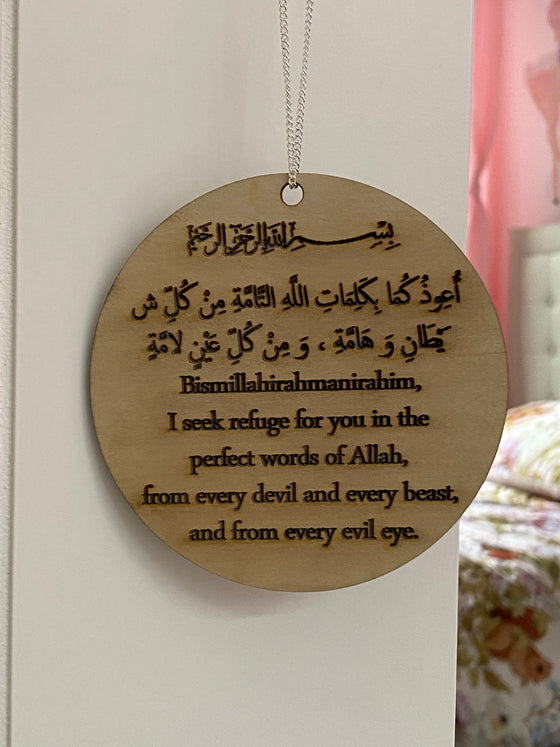 بِسْمِ اللهِ الرَّحْمٰنِ الرَّحِيْمِ
أُعِوذُ كُمَا بِكَلِمَاتِ اللَّهِ التَّامَّةِ مِنْ كُلِّ ش
يْطَانِ وَ هَامَّةِ ، وَ مِنْ كُلِّ عَيْنٍ لامَّةِ
Bismillahirahmanirahim,
I seek refuge for you in the
perfect words of Allah,
from every devil and every beast,
and from every evil eye.